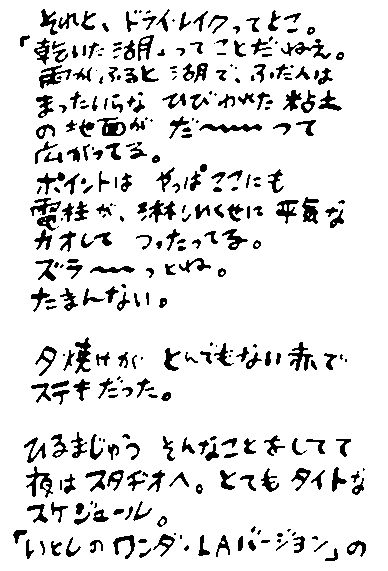 それと、ドライ・レイクってとこ。
「乾いた湖」ってことだねえ。
雨がふると湖で、ふだんは
まったいらな ひびわれた粘土
の地面が だ〜〜〜って
広がってる。
ポイントは やっぱここにも
電柱が、淋しいくせに平気な
カオして つったってる。
ズラ〜〜っとね。
たまんない。
夕焼けが とんでもない赤で
ステキだった。
ひるまじゅう そんなことをしてて
夜はスタヂオへ。とてもタイトな
スケジュール。
「いとしのワンダ・LAバージョン」の